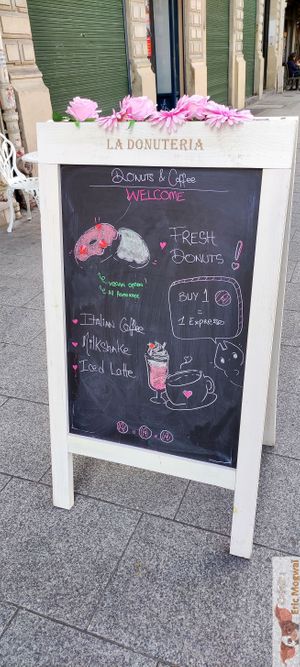 LA DONUTERIA
DONUTS & Coffee
WELCOME
FRESH
DONUTS!
VEGAN OPTION
BUY 1
=
1 EXPRESSO
Italian Coffee
Milkshake
Iced Latte
Eric Mogwai